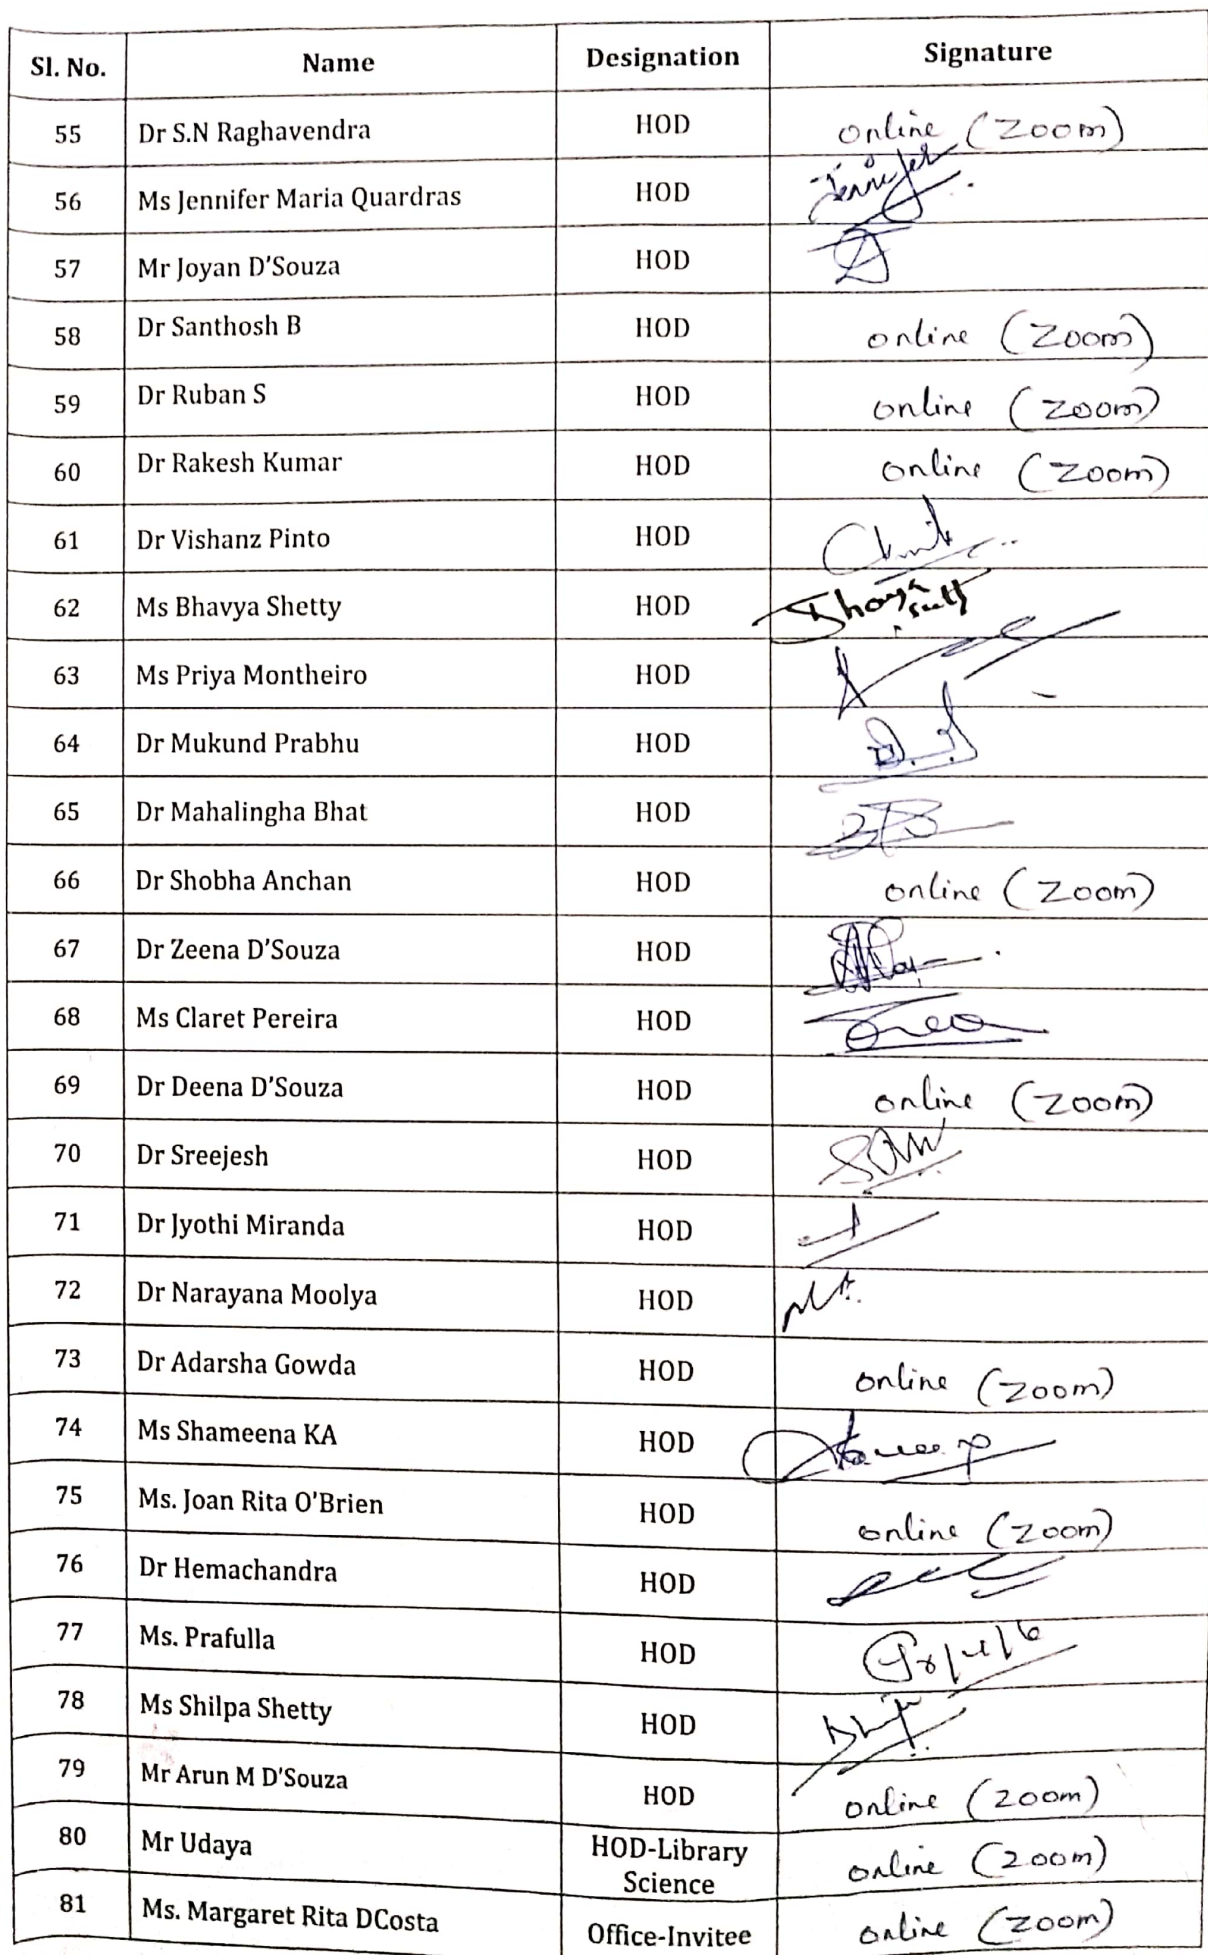 Sl. No. Name Designation Signature
55 Dr S.N Raghavendra HOD online (Zoom)
56 Ms Jennifer Maria Quardras HOD Jennifer
57 Mr Joyan D'Souza HOD
58 Dr Santhosh B HOD online (Zoom)
59 Dr Ruban S HOD online (Zoom)
60 Dr Rakesh Kumar HOD online (Zoom)
61 Dr Vishanz Pinto HOD
62 Ms Bhavya Shetty HOD
63 Ms Priya Montheiro HOD
64 Dr Mukund Prabhu HOD
65 Dr Mahalingha Bhat HOD
66 Dr Shobha Anchan HOD online (Zoom)
67 Dr Zeena D'Souza HOD
68 Ms Claret Pereira HOD
69 Dr Deena D'Souza HOD online (Zoom)
70 Dr Sreejesh HOD
71 Dr Jyothi Miranda HOD
72 Dr Narayana Moolya HOD
73 Dr Adarsha Gowda HOD online (Zoom)
74 Ms Shameena KA HOD
75 Ms. Joan Rita O'Brien HOD online (Zoom)
76 Dr Hemachandra HOD
77 Ms. Prafulla HOD
78 Ms Shilpa Shetty HOD
79 Mr Arun M D'Souza HOD online (Zoom)
80 Mr Udaya HOD-Library
Science online (Zoom)
81 Ms. Margaret Rita DCosta Office-Invitee online (Zoom)